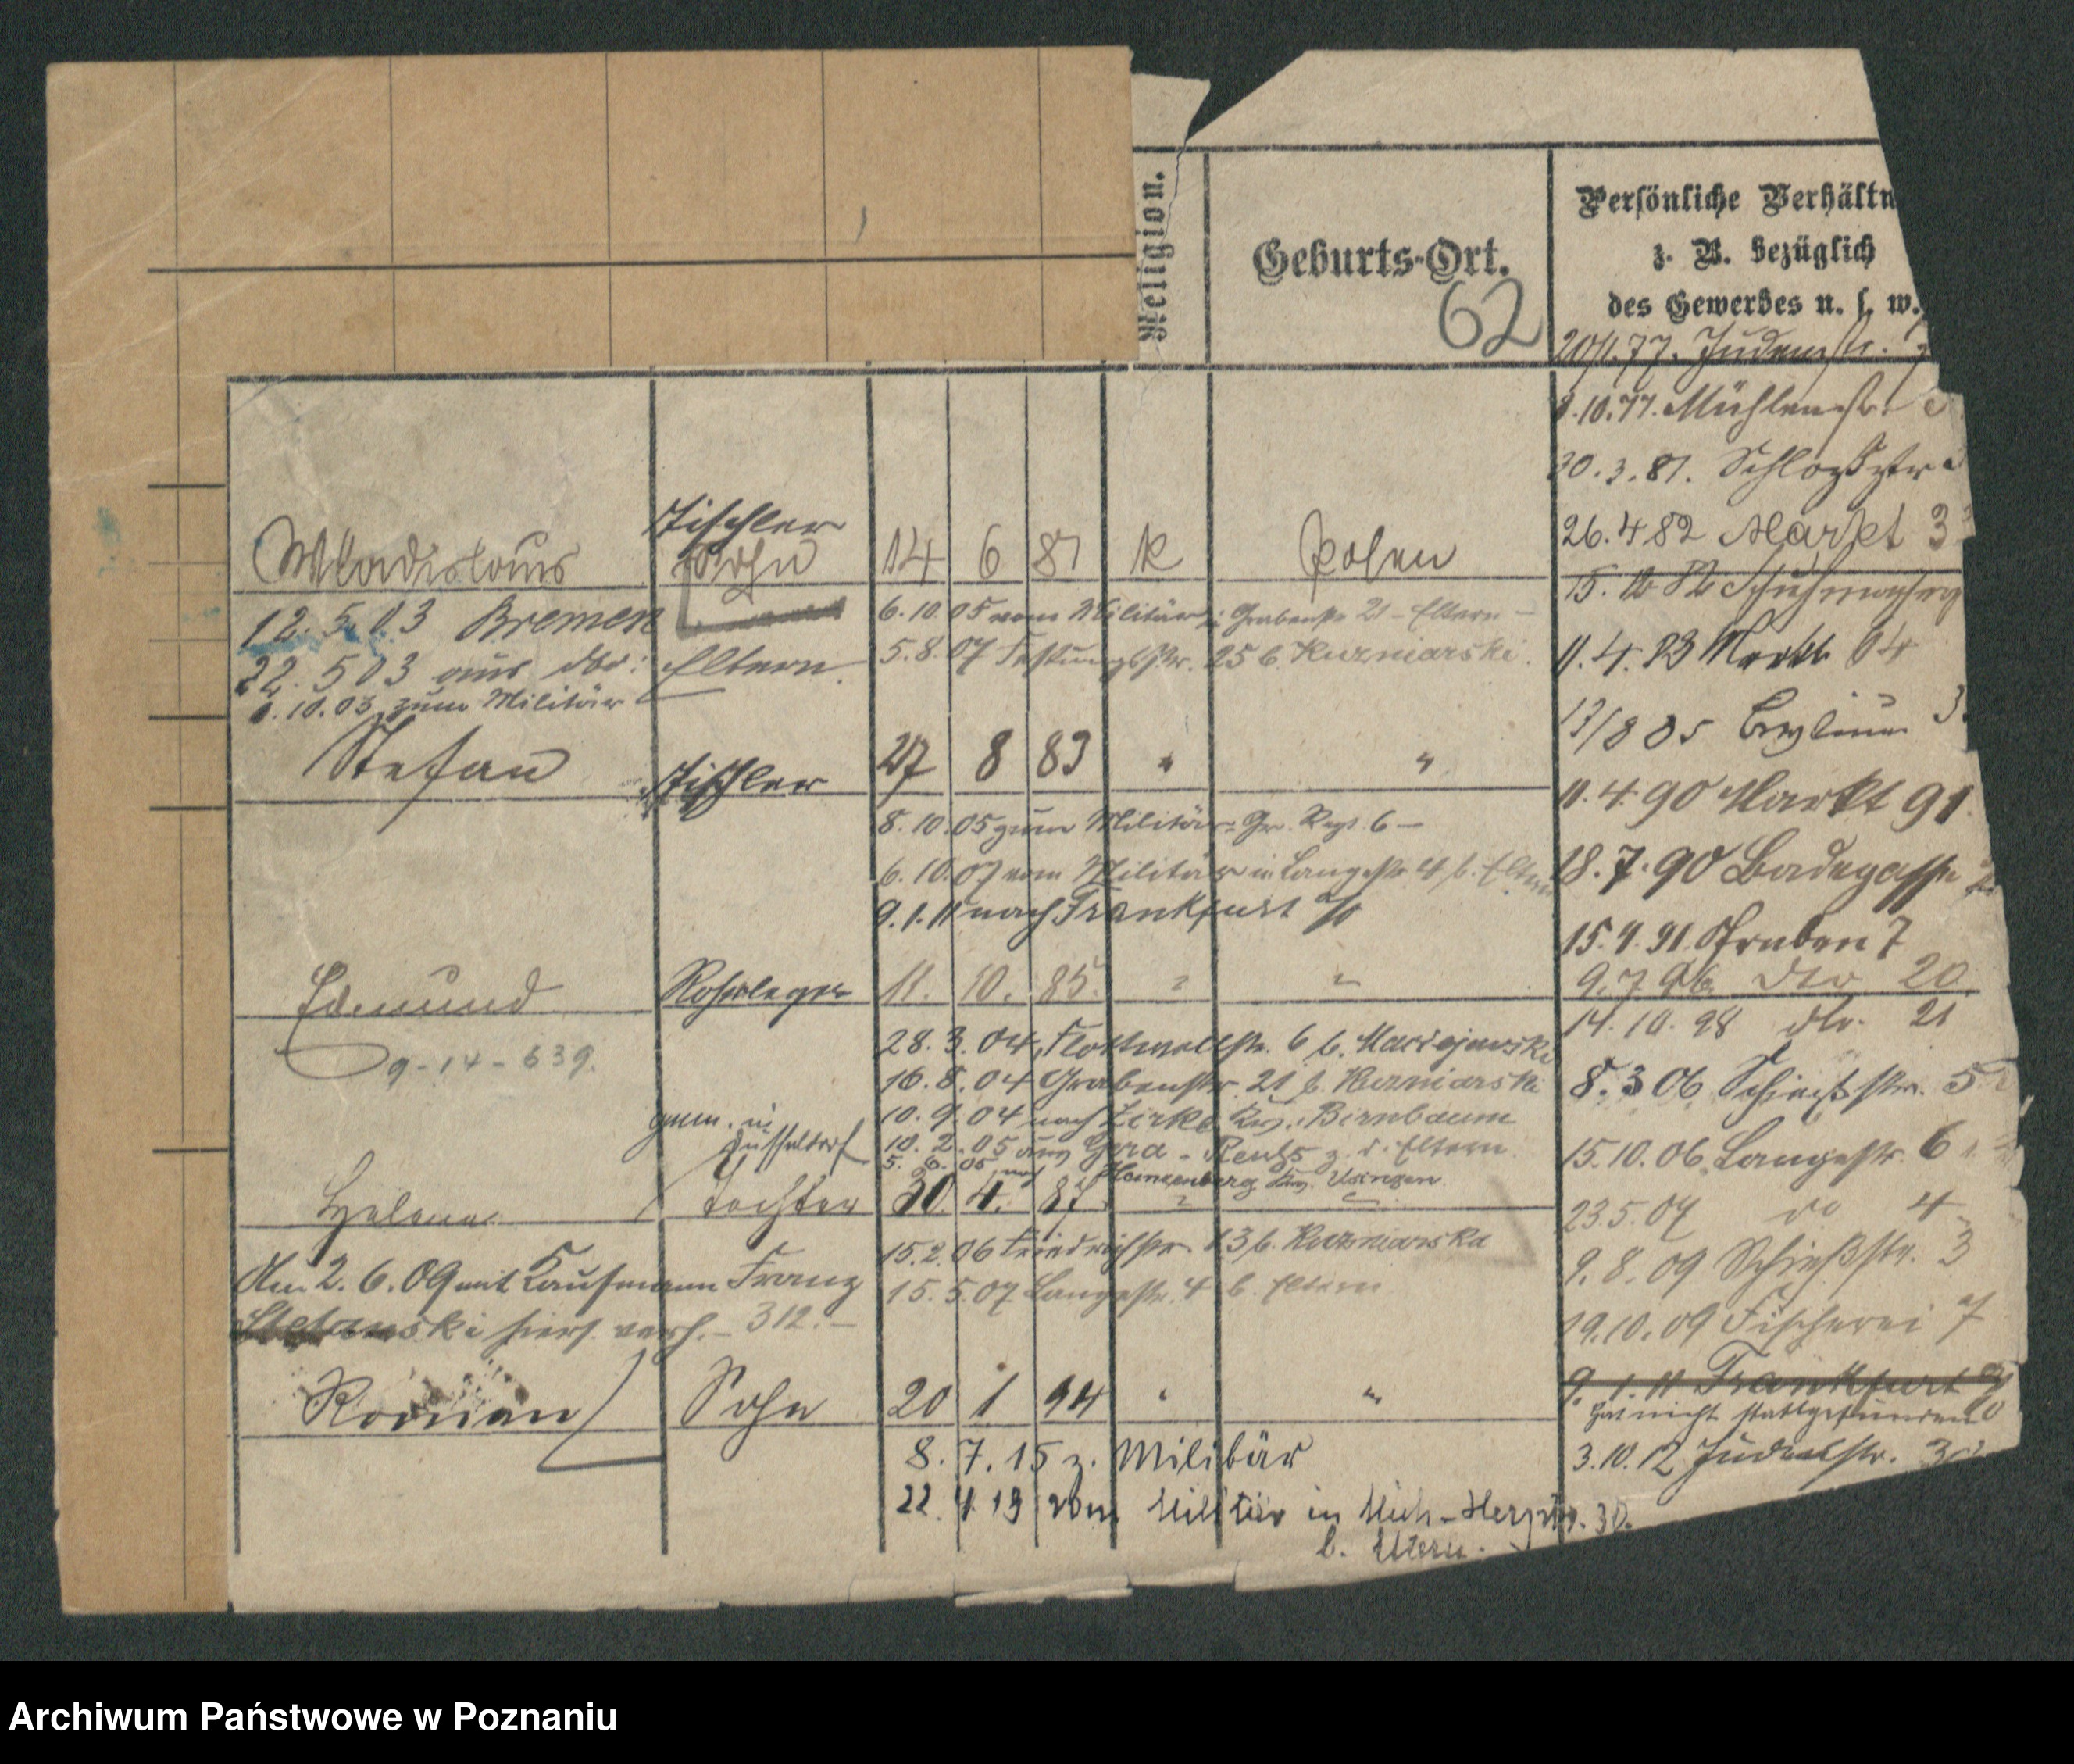 Religion.
Geburts-Ort.
62
Persönliche Verhältn
z. B. bezüglich
des Gewerbes u. s. w.
20/1.77. Judenstr.
1.10.77. Mühlenstr.
30.3.81. Schloßstr
26.4 82 Markt 3
15. 12 82 Schuhmacher
11.4.83 Markt 64
17/8 85
11.4.90 Markt 91
18.7.90 Badegasse
15.4.91. Graben 7
9.7 96. dto 20.
14.10.98 dto. 21
8.3 06 Schießstr. 5
15.10.06 Langestr. 6
23.5.07 do 4
9.8.09 Schießstr. 3
19.10.09 Fischerei 7
9.1.11 Frankfurt a/O
hat nicht stattgefunden
3.10.12 Judenstr. 3
Wladislaus Tischler Sohn 14 6 81 k Posen
12.5.03 Bremen
22.5 03 aus dto: Eltern.
1.10.03 zum Militär
6.10.05 vom Militär in Grabenstr 21 - Eltern -
5.8.07 Festungsstr. 25 b. Kuzniarski.
Stefan Tischler 27 8 83 " "
8.10.05 zum Militär Gr. Regt. 6 -
6.10.07 vom Militär in Langestr 4 b. Eltern
9.1.11 nach Frankfurt a/O
Edmund Rohrleger 11. 10. 85. " "
9-14-639.
28.3.04 Flottwellstr. 6 b. Maciejewski
16.8.04 Grabenstr. 21 b. Kuzniarski
10.9.04 nach Zirke Krs. Birnbaum
10.2.05 aus Gera - Reuß z. d. Eltern.
5. 6. 05 nach Kr. Usingen.
gem. in
Düsseldorf
Helena Tochter 30. 4. 87. " "
15.2.06 Friedrichstr. 13 b. Kuzniarska
15.5.07 Langestr. 4 b. Eltern
Am 2.6.09 mit Kaufmann Franz
Stefanski hiers. verh. - 312. -
Roman Sohn 20 1 94 " "
8.7.15 z. Militär
22.4.19 vom Militär in 30.
b. Eltern.
Archiwum Państwowe w Poznaniu